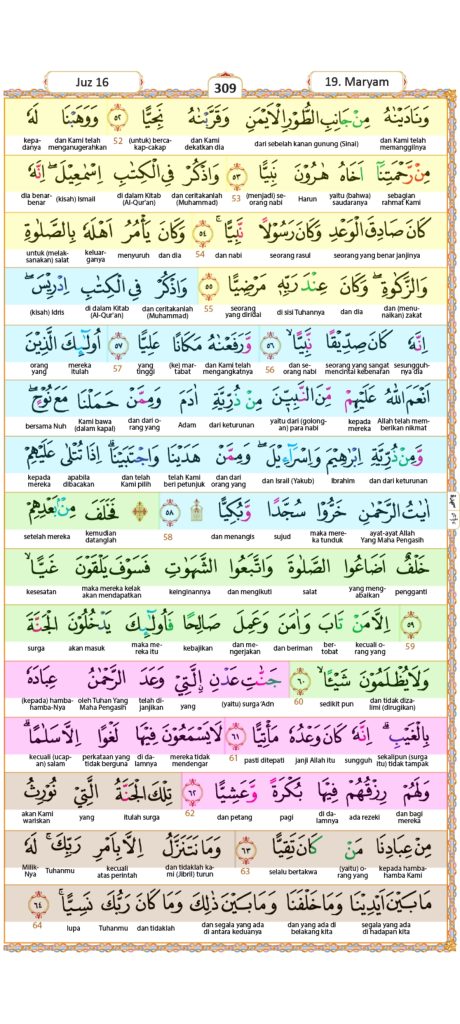 Juz 16
309
19. Maryam
وَنَادَيْنٰهُ مِنْ جَانِبِ الطُّوْرِ الْاَيْمَنِ وَقَرَّبْنٰهُ نَجِيًّا ٥٢ وَوَهَبْنَا لَهٗ
dan Kami telah memanggilnya dari sebelah kanan gunung (Sinai) dan Kami dekatkan dia (untuk) bercakap-cakap 52 dan Kami telah menganugerahkan kepadanya
مِنْ رَّحْمَتِنَآ اَخَاهُ هٰرُوْنَ نَبِيًّا ٥٣ وَاذْكُرْ فِى الْكِتٰبِ اِسْمٰعِيْلَ ۖ اِنَّهٗ
sebagian rahmat Kami yaitu (bahwa) saudaranya Harun (menjadi) seorang nabi 53 dan ceritakanlah (Muhammad) di dalam Kitab (Al-Qur'an) (kisah) Ismail dia benar-benar
كَانَ صَادِقَ الْوَعْدِ وَكَانَ رَسُوْلًا نَّبِيًّا ۚ ٥٤ وَكَانَ يَأْمُرُ اَهْلَهٗ بِالصَّلٰوةِ
seorang yang benar janjinya seorang rasul dan nabi 54 dan dia menyuruh keluarganya untuk (melaksanakan) salat
وَالزَّكٰوةِ ۖ وَكَانَ عِنْدَ رَبِّهٖ مَرْضِيًّا ٥٥ وَاذْكُرْ فِى الْكِتٰبِ اِدْرِيْسَ ۖ
dan (menunaikan) zakat dan dia di sisi Tuhannya seorang yang diridai 55 dan ceritakanlah (Muhammad) di dalam Kitab (Al-Qur'an) (kisah) Idris
اِنَّهٗ كَانَ صِدِّيْقًا نَّبِيًّا ۙ ٥٦ وَّرَفَعْنٰهُ مَكَانًا عَلِيًّا ٥٧ اُولٰۤىِٕكَ الَّذِيْنَ
sesungguhnya seorang yang sangat mencintai kebenaran dan seorang nabi 56 dan Kami telah mengangkatnya (ke) martabat yang tinggi 57 mereka itulah orang yang
اَنْعَمَ اللّٰهُ عَلَيْهِمْ مِّنَ النَّبِيّٖنَ مِنْ ذُرِّيَّةِ اٰدَمَ وَمِمَّنْ حَمَلْنَا مَعَ نُوْحٍ ۖ
Allah telah memberikan nikmat kepada mereka yaitu dari (golongan) para nabi dari keturunan Adam dan dari orang yang Kami bawa (dalam kapal) bersama Nuh
وَّمِنْ ذُرِّيَّةِ اِبْرٰهِيْمَ وَاِسْرَاۤءِيْلَ ۖ وَمِمَّنْ هَدَيْنَا وَاجْتَبَيْنَا ۗ اِذَا تُتْلٰى عَلَيْهِمْ
dan dari keturunan Ibrahim dan Israil (Yakub) dan dari orang yang telah Kami beri petunjuk dan telah Kami pilih apabila dibacakan kepada mereka
اٰيٰتُ الرَّحْمٰنِ خَرُّوْا سُجَّدًا وَّبُكِيًّا ٥٨ فَخَلَفَ مِنْۢ بَعْدِهِمْ
ayat-ayat Allah Yang Maha Pengasih maka mereka tunduk sujud dan menangis 58 kemudian datanglah setelah mereka
خَلْفٌ اَضَاعُوا الصَّلٰوةَ وَاتَّبَعُوا الشَّهَوٰتِ فَسَوْفَ يَلْقَوْنَ غَيًّا ۙ
pengganti yang mengabaikan salat dan mengikuti keinginannya maka mereka kelak akan mendapatkan kesesatan
٥٩ اِلَّا مَنْ تَابَ وَاٰمَنَ وَعَمِلَ صَالِحًا فَاُولٰۤىِٕكَ يَدْخُلُوْنَ الْجَنَّةَ
59 kecuali orang yang bertobat dan beriman dan mengerjakan kebajikan maka mereka itu akan masuk surga
وَلَا يُظْلَمُوْنَ شَيْـًٔا ۙ ٦٠ جَنّٰتِ عَدْنِ ِۨالَّتِيْ وَعَدَ الرَّحْمٰنُ عِبَادَهٗ
dan tidak dizalimi (dirugikan) sedikit pun 60 (yaitu) surga 'Adn yang telah dijanjikan oleh Tuhan Yang Maha Pengasih (kepada) hamba-hamba-Nya
بِالْغَيْبِۗ اِنَّهٗ كَانَ وَعْدُهٗ مَأْتِيًّا ٦١ لَا يَسْمَعُوْنَ فِيْهَا لَغْوًا اِلَّا سَلٰمًاۗ
sekalipun (surga itu) tidak tampak sungguh janji Allah itu pasti ditepati 61 mereka tidak mendengar di dalamnya perkataan yang tidak berguna kecuali (ucapan) salam
وَلَهُمْ رِزْقُهُمْ فِيْهَا بُكْرَةً وَّعَشِيًّا ٦٢ تِلْكَ الْجَنَّةُ الَّتِيْ نُوْرِثُ
dan bagi mereka ada rezeki di dalamnya pagi dan petang 62 itulah surga yang akan Kami wariskan
مِنْ عِبَادِنَا مَنْ كَانَ تَقِيًّا ٦٣ وَمَا نَتَنَزَّلُ اِلَّا بِاَمْرِ رَبِّكَۚ لَهٗ
kepada hamba-hamba Kami (yaitu) orang yang selalu bertakwa 63 dan tidaklah kami (Jibril) turun kecuali atas perintah Tuhanmu Milik-Nya
مَا بَيْنَ اَيْدِيْنَا وَمَا خَلْفَنَا وَمَا بَيْنَ ذٰلِكَ وَمَا كَانَ رَبُّكَ نَسِيًّاۚ ٦٤
segala yang ada di hadapan kita dan yang ada di belakang kita dan segala yang ada di antara keduanya dan tidaklah Tuhanmu lupa 64